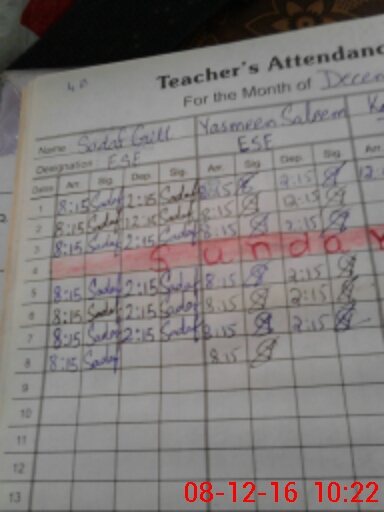 Teacher's Attendanc
For the Month of Decem
Name Sadaf Gill Yasmeen Saleem
Designation ESE ESE
Dates Arr. Sig. Dep. Sig. Arr. Sig. Dep. Sig. Arr.
1 8:15 Sadaf 2:15 Sadaf 8:15 2:15 12
2 8:15 Sadaf 12:15 Sadaf 8:15 12:15
3 8:15 Sadaf 2:15 Sadaf 8:15 2:15
4 Sunday
5 8:15 Sadaf 2:15 Sadaf 8:15 2:15
6 8:15 Sadaf 2:15 Sadaf 8:15 2:15
7 8:15 Sadaf 2:15 Sadaf 8:15 2:15
8 8:15 Sadaf 8:15
9
10
11
12
13
08-12-16 10:22